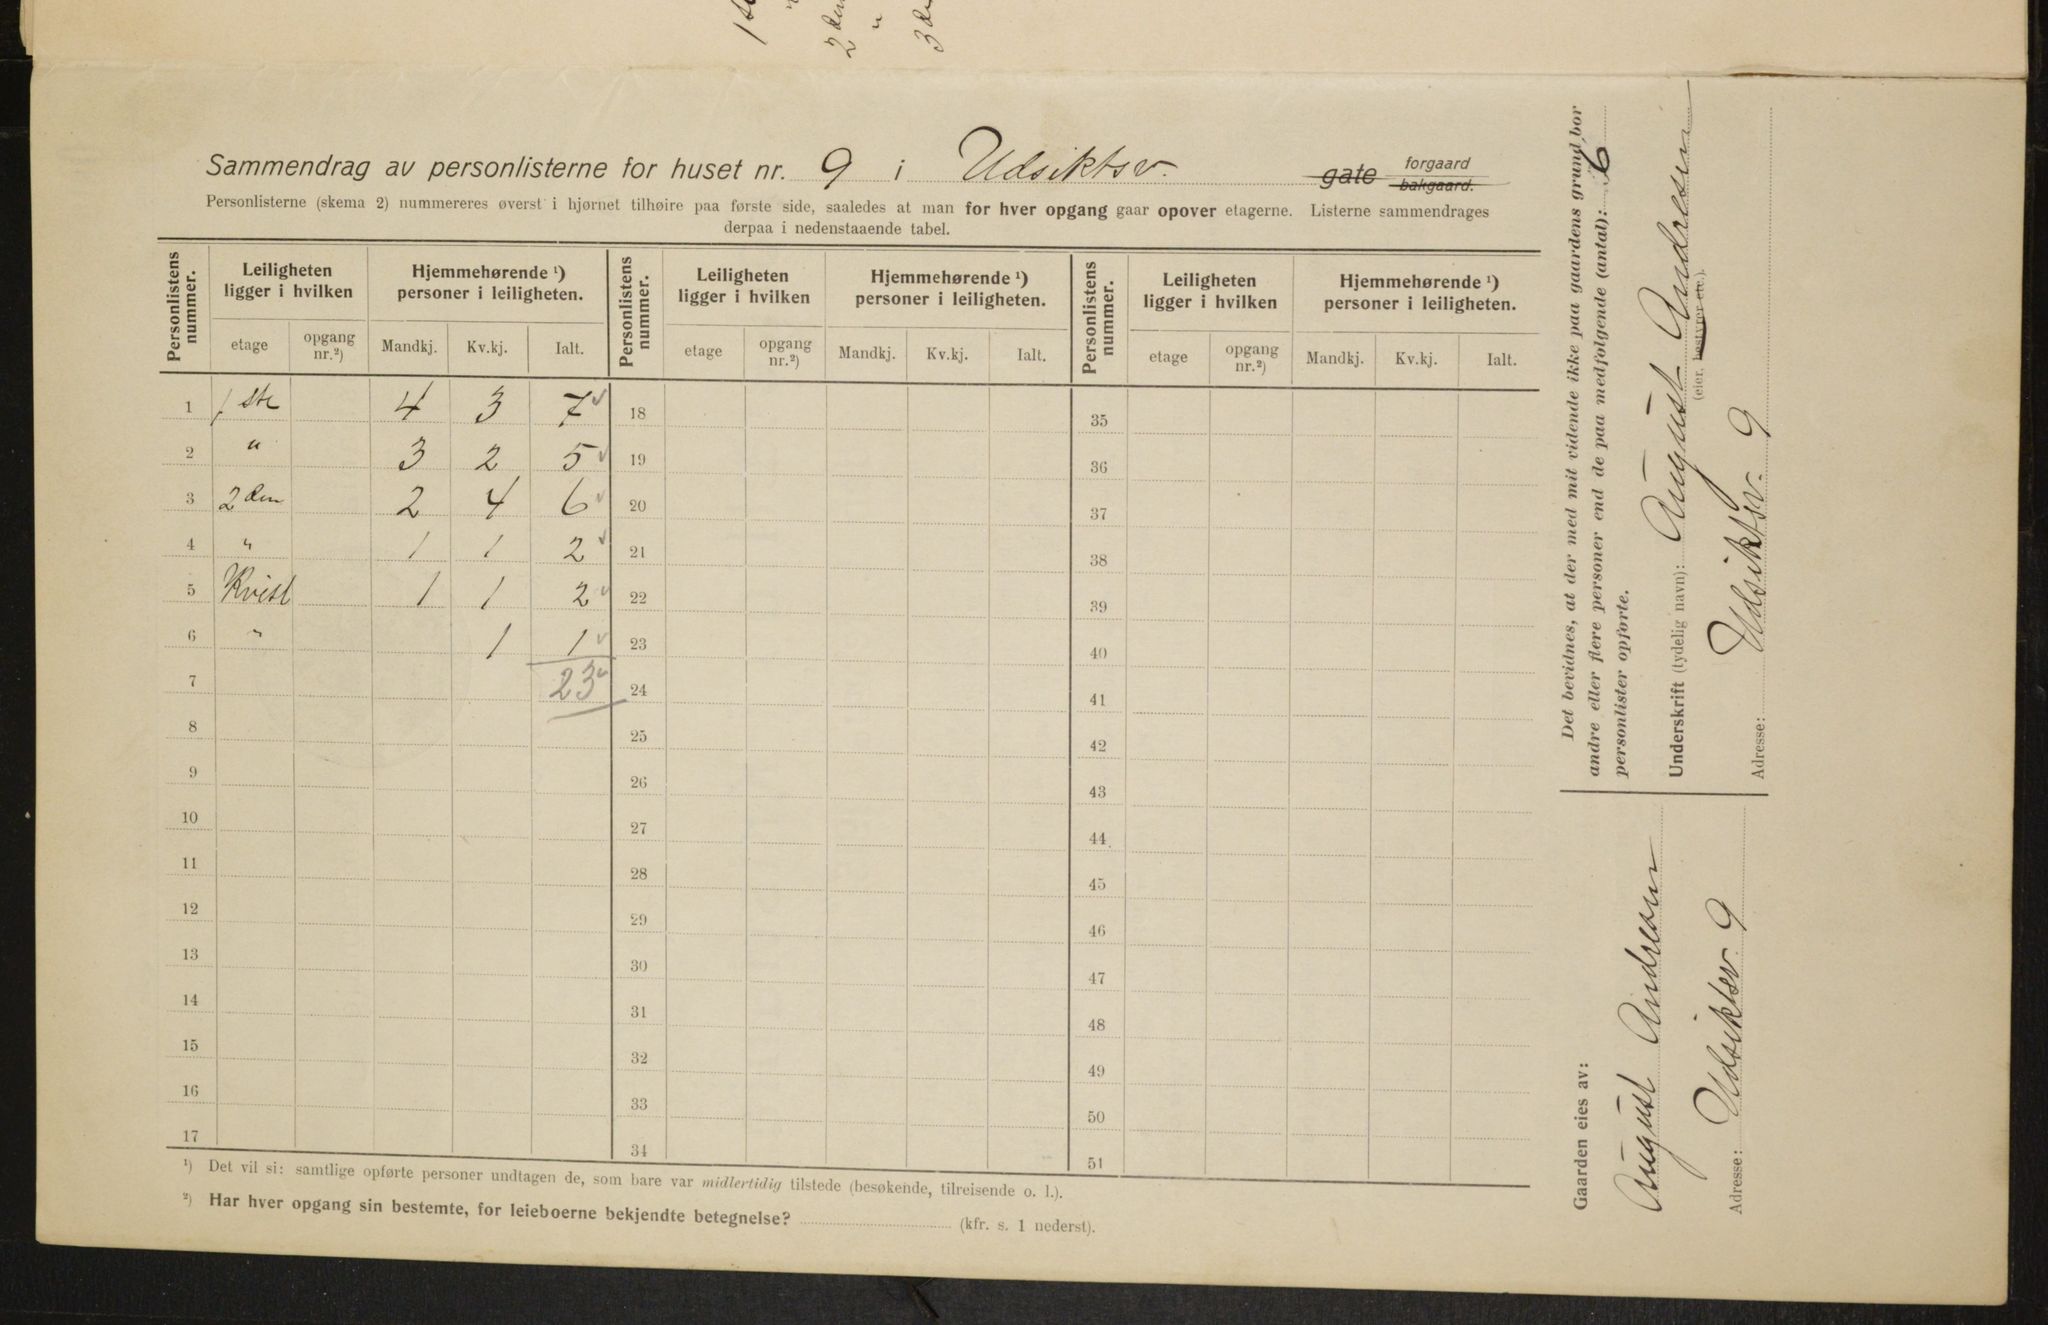 1ste
"
2den
"
3d
Sammendrag av personlisterne for huset nr. 9 i Udsiktsv. gate forgaard bakgaard.
Personlisterne (skema 2) nummereres øverst i hjørnet tilhøire paa første side, saaledes at man for hver opgang gaar opover etagerne. Listerne sammendrages
derpaa i nedenstaaende tabel.
Personlistens nummer. Leiligheten ligger i hvilken Hjemmehørende ¹) personer i leiligheten. Personlistens nummer. Leiligheten ligger i hvilken Hjemmehørende ¹) personer i leiligheten. Personlistens nummer. Leiligheten ligger i hvilken Hjemmehørende ¹) personer i leiligheten.
etage opgang nr.²) Mandkj. Kv.kj. Ialt. etage opgang nr.²) Mandkj. Kv.kj. Ialt. etage opgang nr.²) Mandkj. Kv.kj. Ialt.
1 1ste 4 3 7 18 35
2 " 3 2 5 19 36
3 2den 2 4 6 20 37
4 " 1 1 2 21 38
5 Kvist 1 1 2 22 39
6 " 1 1 23 40
7 23 24 41
8 25 42
9 26 43
10 27 44
11 28 45
12 29 46
13 30 47
14 31 48
15 32 49
16 33 50
17 34 51
¹) Det vil si: samtlige opførte personer undtagen de, som bare var midlertidig tilstede (besøkende, tilreisende o. l.).
²) Har hver opgang sin bestemte, for leieboerne bekjendte betegnelse? (kfr. s. 1 nederst).
Det bevidnes, at der med mit vidende ikke paa gaardens grund bor
andre eller flere personer end de paa medfølgende (antal): 6
personlister opførte.
Underskrift (tydelig navn): August Andresen
(eier, bestyrer etc.).
Adresse: Udsiktsv. 9
Gaarden eies av:
August Andresen
Adresse: Udsiktsv 9